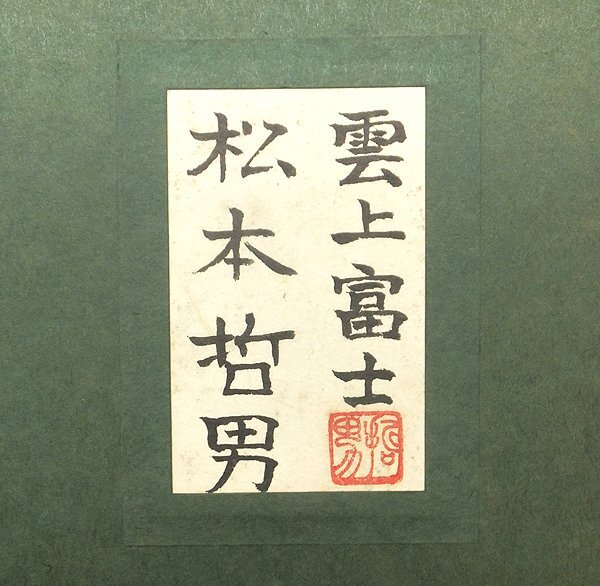 雲上富士
松本哲男
哲男